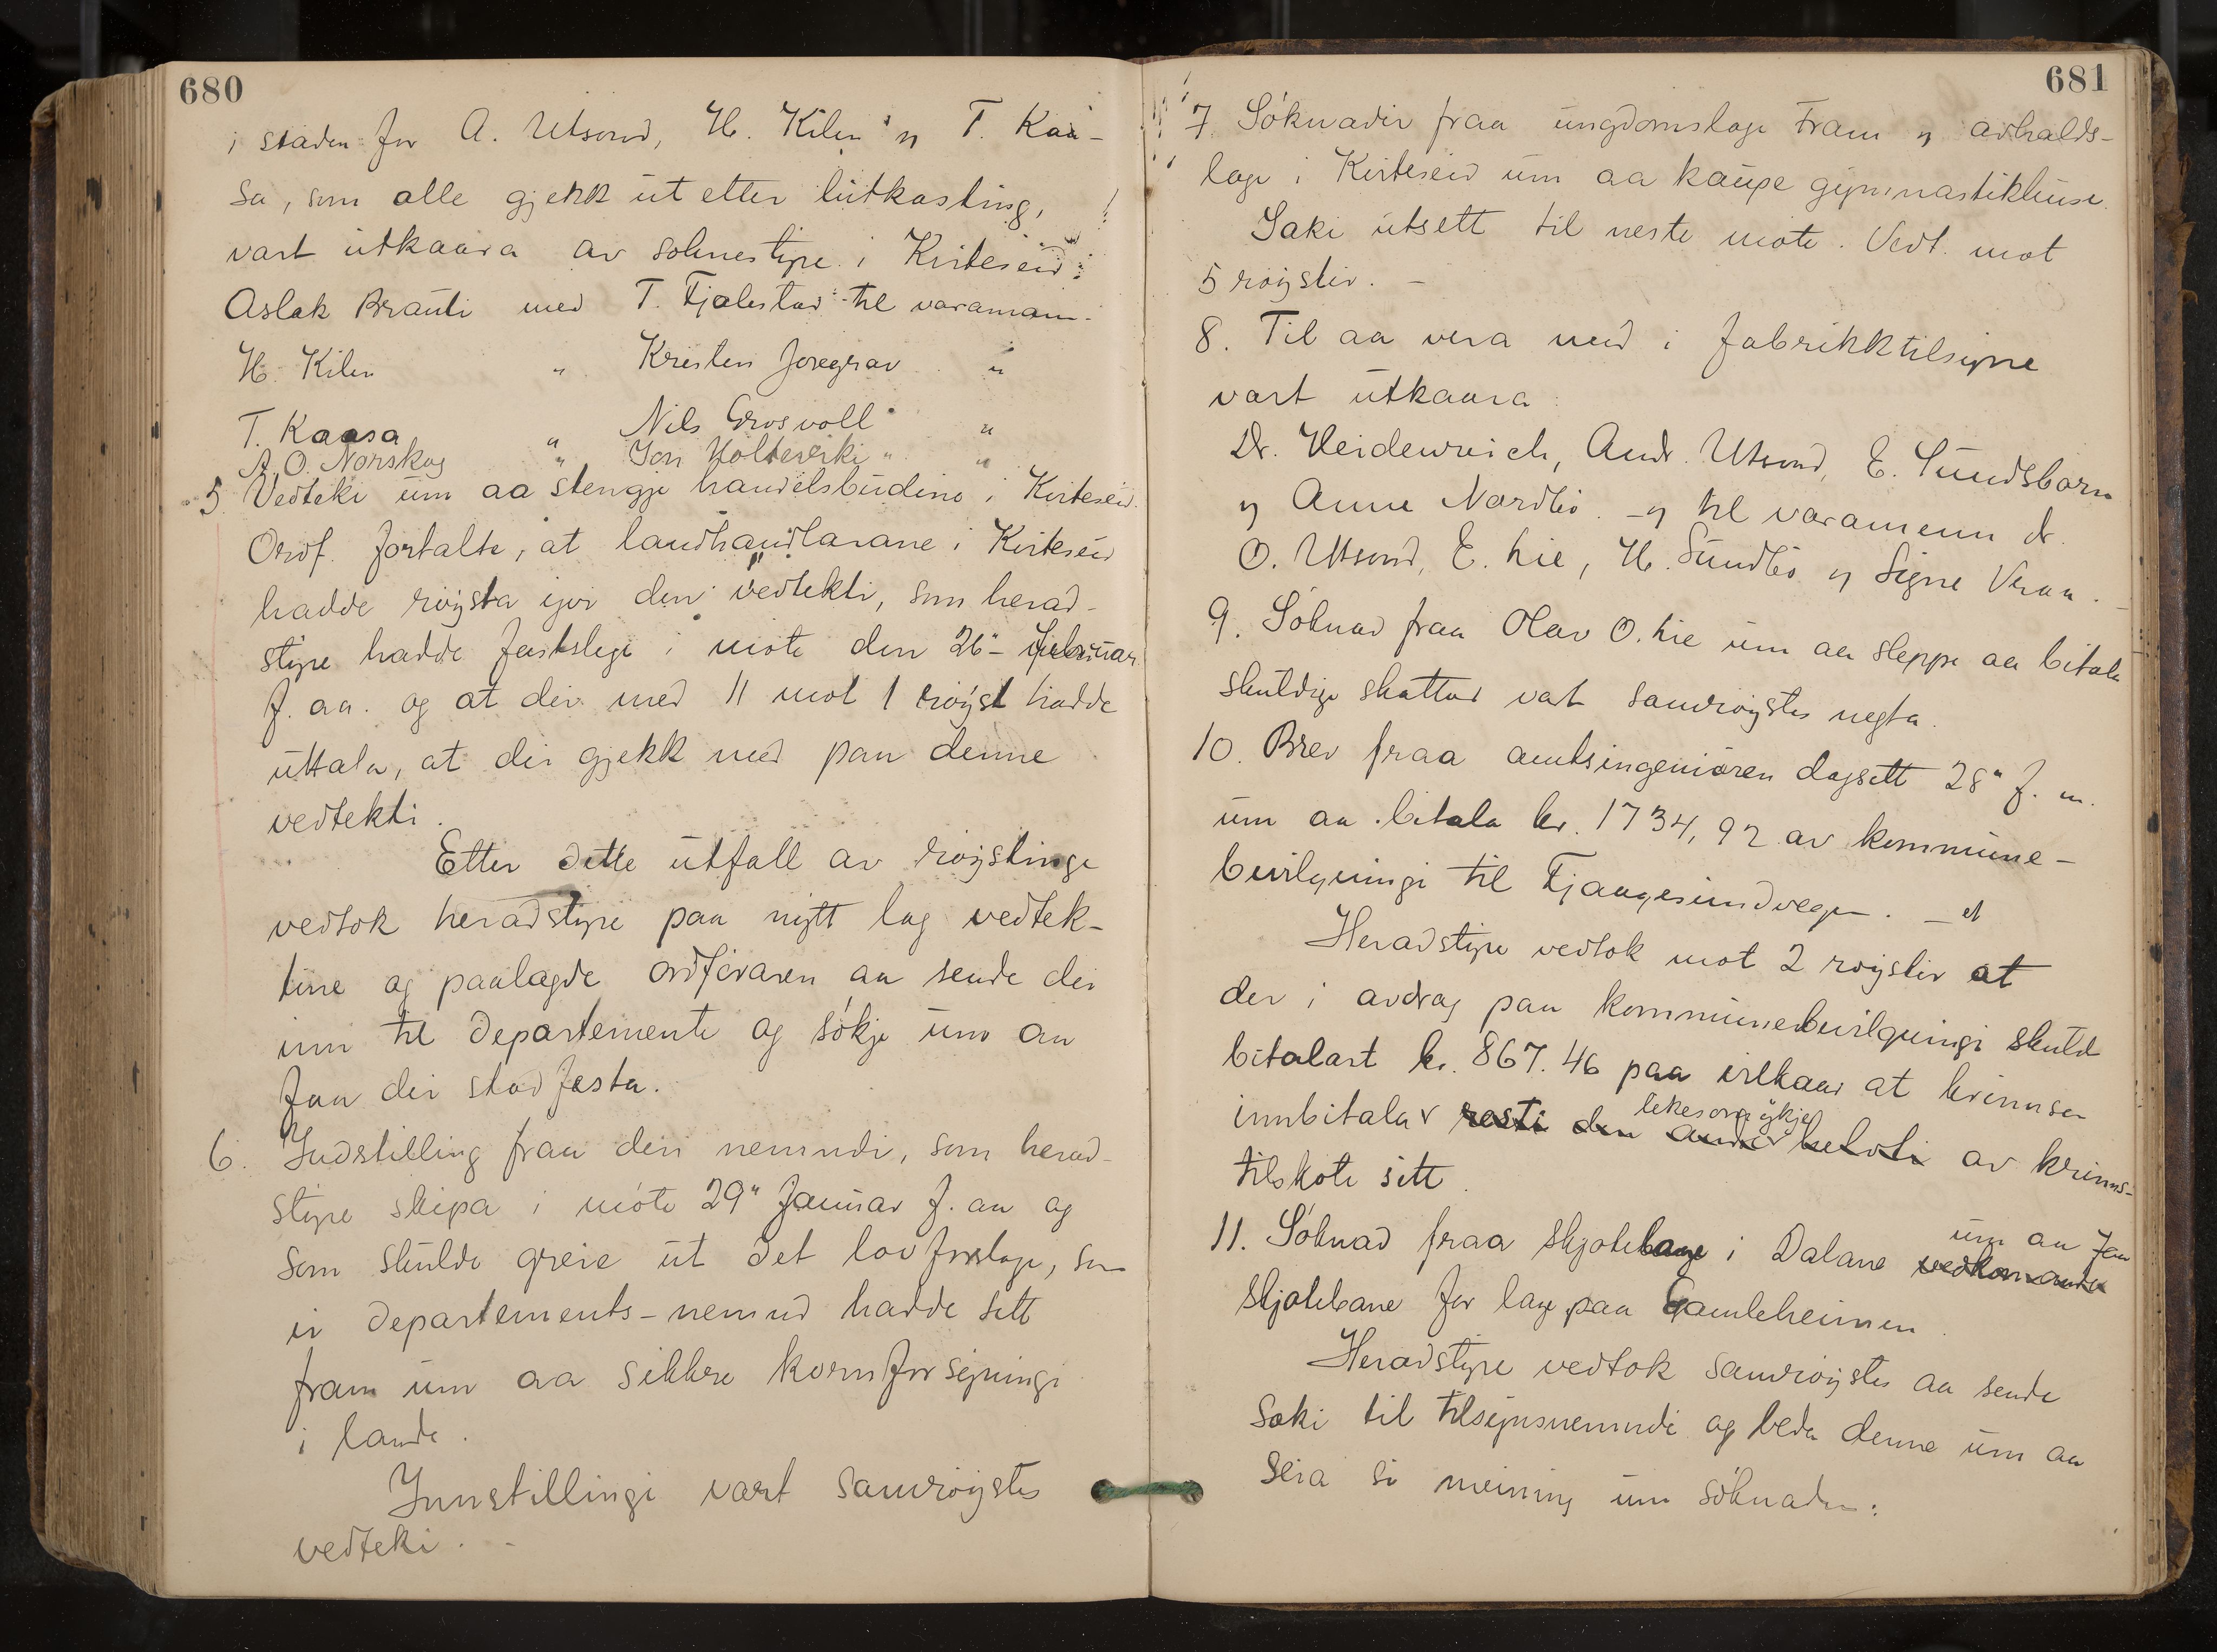 680
i staden for A. Utsond, H. Kilen og T. Kaa-
sa, som alle gjekk ut etter lutkasting,
vart utkaara av soknestyre i Kviteseid:
Aslak Brauti med T. Fjalestad til varamann.
H. Kilen " Kristen Joregrav "
T. Kaasa " Nils Grosvoll "
A. O. Norskog " Jon Holteviki " "
5 Vedteki um aa stengje handelsbudine i Kviteseid.
Ordf. fortalte, at landhandlarane i Kviteseid
hadde röysta yvi den vedtekti, som herad-
styre hadde fastslege i möte den 26" februar
f. aa. og at dei med 11 mot 1 röyst hadde
uttala, at dei gjekk med paa denne
vedtekti.
Etter dette utfall av röystingi
vedtok heradstyre paa nytt lag vedtek-
tine og paalagde ordföraren aa sende dei
inn til Departemente og sökje um aa
faa dei stadfesta.
6. Indstilling fraa dei nemndi, som herad-
styre skipa i möte 29" Januar f. aa og
som skulde greie ut det lovforslage, som
ei Departements-nemnd hadde sett
fram um aa sikkre kornforsyningi
i lande.
Innstillingi vart samröystes
vedteki. -
681
7. Söknadir fraa ungdomslage Fram og avhalds-
lage i Kviteseid um aa kaupe gymnastikhuse.
Saki utsett til neste möte. Vedt. mot
5 röystir. -
8. Til aa vera med i fabrikktilsyne
vart utkaara:
Dr. Heidenreich, Andr. Utsond, E. Sundsbarm
og Anne Nordbö. - og til varamenn dr.
O. Utsond, E. Lie, H. Sundbö og Signe Vraa. -
9. Söknad fraa Olav O. Lie um aa sleppe aa bitala
skuldige skattar vart samröystes negta.
10. Brev fraa amtsingeniören dagsett 28" f. m.
um aa bitala kr. 1734,92 av kommune-
bevilgningi til Fjaagesundvegen. -
Heradstyre vedtok mot 2 röystir at
der i avdrag paa kommunebevilgningi skuld
bitalast kr. 867.46 paa vilkaar at krinnsen
likesovöykje
innbitalar resti den andre helvti av krinns-
tilskote sitt.
um aa faa
11. Söknad fraa skjotelage i Dalane vedkomande
skjotebane for lage paa Gamleheimen.
Heradstyre vedtok samröystes aa sende
saki til tilsynsnemndi og beda denne um aa
seia si meining um söknaden: